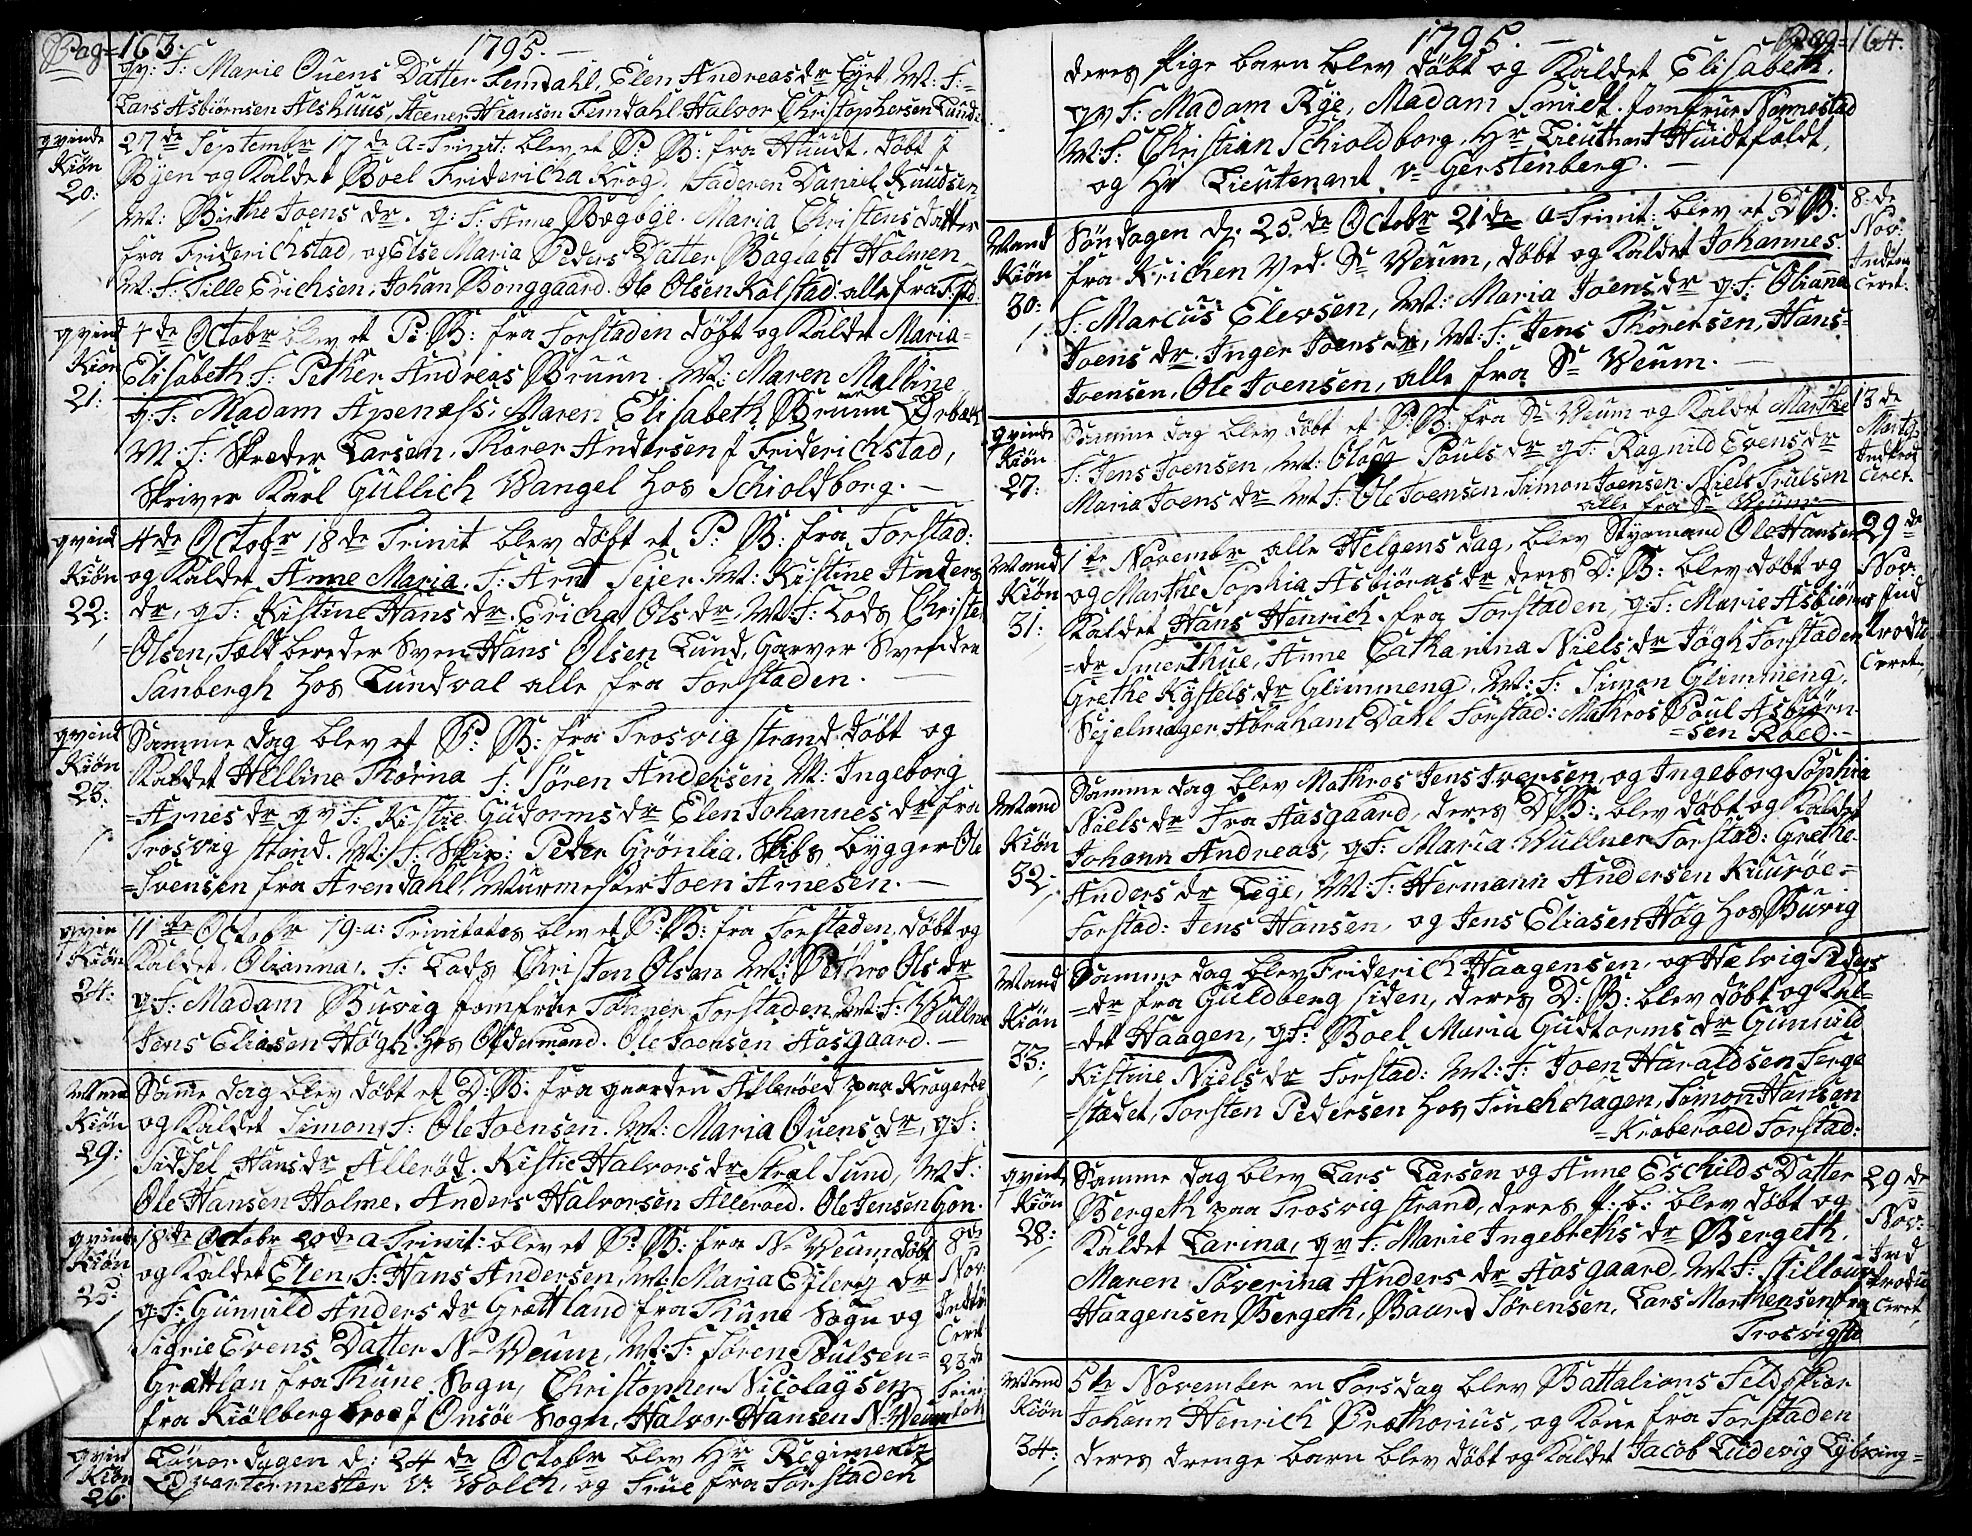 Pag=163. 1795. —
qv: F: Marie Ouens Datter Femdahl, Elen Andreasdr Lyet, M: F:=
Lars Asbiørnsen Alshuus, Hansen Femdahl Halvor Christophersen Lund
qvinde Kiøn 20:
27de Septembr 17de a=Trinit: blev et P: B: fra Huudt. døbt i
Byen og Kaldet Boel Fridericha Krog. Faderen Daniel Knudsen
M: Birthe Joens dr. q: F: Anne Bøgbye. Maria Christens datter
fra Friderichstad, og Else Maria Peders Datter Baglast Holmen
M: F: Tille Erichsen, Johan Bonggaard. Ole Olsen Kolstad alle fra F:stad
qvind Kiøn 21:
4de Octobr blev et P: B: fra Forstaden døbt og Kaldet Maria=
Elisabeth F: Pether Andreas Bruun. M: Maren Malline
q: F: Madam Apenæss, Maren Elisabeth Bruun
M: F: Skræder Larsen, Thorer Andersen f Friderichstad,
Skriver Karl Gullich Wangel hos Schioldborg. —
qvind Kiøn 22:
4de Octobr 18de Trinit blev døbt et P: B: fra Forstad:
og Kaldet Anne Maria. F: Arnt Sejer M: Kistine Anders
dr, q F: Kistine Hans dr. Ericha Ols dr, M: F: Lods Christe
=Olsen, Feldbereder Sven Hans Olsen Lund, Garver Svenden
Sanbergh hos Lundval alle fra Forstaden. —
qvind Kiøn 23:
Samme dag blev et P: B: fra Trosvig strand døbt og
Kaldet Helline Thorna F: Søren Andersen M: Ingeborg
=Arnes dr qv F: Kistie Gudorms dr Elen Johannes dr fra
Trosvig strand. M: F: Skip: Peder Grønlia. Skibs bygger Ole
=Svensen fra Arendahl. Muurmester Joen Arnesen. —
qvin Kiøn 24:
11te Octobr 19=a: Trinitates blev et P: B: fra Forstaden, døbt og
Kaldet Olianna. F: Lods Christen Olsen M: Petero Ols dr
q F: Madam Buvig Jomfrue Forstaden M: F: Wullner
Jens Eliasen Høgh hos Oldermand. Ole Joensen Aasgaard. —
Mand Kiøn 29:
Same dag blev døbt et D: B: fra gaarden Allerøed paa Kragerøe
og Kaldet Simon F: Ole Joensen. M: Maria Ouens dr, q: F:
Sidsel Hans dr Allerød. Kistie Halvors dr Stral Sund, M F:
Ole Hansen Holme. Anders Halvorsen Allerøed. Ole Jensen Gon.
qvinde Kiøn 25:
18de Octobr 20de a Trinit: blev et P: B: fra N= Veum døbt
og Kaldet Elen, F: Hans Andersen, M: Maria Esberg dr
q F: Gunnild Anders dr Grøttland fra Thune Sogn og
Sigrie Evens Datter N= Veum, M: F: Søren Poulsen=
Grøttlan fra Thune Sogn, Christopher Nicolaysen
fra Kiølberg broe f Onsøe Sogn, Halvor Hansen N= Veum
8de Nov: Introd Ceret 23de Trini
qvin Kiøn 26.
Løverdagen d: 24de Octobr blev Hr Regimentz
Qvartermester v: Walch, og Frue fra Forstaden
1795. — Pag=164.
deres Pige barn blev døbt og Kaldet Elisabeth.
qv F: Madam Rye, Madam Smidt. Jomfrue Nomestad
M: F: Christian Schioldborg, Hr Lieuthant Huidtfeldt,
og Hr Lieutenant v= Gerstenberg. —
Mand Kiøn 30:
Søndagen d: 25de Octobr 21de a=Trinit: blev et D: B:
fra Krichen Ved Sr Veum, døbt og Kaldet Johannes.
F: Marcus Elevsen, M: Maria Joens dr q F: Olianna
Joens dr. Inger Joens dr, M: F: Jens Thorersen, Hans=
Joensen, Ole Joensen, alle fra Sr Veum. —
8:de Nov: Indtro Ceret:
qvinde Kiøn 27:
Samme dag blev døbt et P: B: fra Sr Veum og Kaldet Marthe
F: Jens Joensen, M: Olaug Pouls dr q F: Ragnild Evens dr
Maria Joens dr M F: Ole Joensen, Simon Joensen. Niels Trulsen
alle fra Sr Veum —
13de Martz Indtrod Ceret.
Mand Kiøn 31:
1te Novembr alle Helgens dag, blev Styrmand Ole Hansen
og Marthe Sophia Asbiørns dr deres D: B: blev døbt og
Kaldet Hans Henrich. fra Forstaden, q: F: Marie Asbiørns
=dr Smerthue, Anne Catharina Niels dr Jøgh Forstaden
Grethe Kystels dr Glimmeng, M: F: Simon Glimmeng,
Sejelmager Abraham Dahl Forstad: Mathros Poul Asbiørn
=sen Roed. —
29de Nov: Ind trodu Ceret,
Mand Kiøn 32:
Samme dag blev Mathros Jens Iversen, og Ingeborg Sophia
Niels dr Fra Aasgaard, deres D: B: blev døbt og Kaldet
Johann Andreas, q F: Maria Wullner Forstad: Grethe
Anders dr Lye, M: F: Hermann Andersen Kuurøe=
Forstad: Jens Hansen, og Jens Eliasen Høg hos Buvig
Mand Kiøn 33:
Samme dag blev Friderich Haagensen, og Helvig Peders
=dr fra Guldberg siden, deres D: B: blev døbt og Kal=
=det Haagen, q F: Boel Maria Gudtorms dr Gunnild
Kistine Niels dr Forstad: M: F: Joen Haraldsen Ferge
=stadet, Torsten Pedersen hos Finchchagen, Simon Hansen
=Kraberøed Forstad:
qvind Kiøn 28:
Samme dag blev Lars Larsen og Anne Eschilds Datter
Bergeth paa Trosvig strand, deres p: b: blev døbt og
Kaldet Larina, qv F: Marie Ingebreths dr Bergeth.
Maren Severina Anders dr Aasgaard, M: F: Stillour
Haagensen Bergeth, Baard Sørensen, Lars Morthensen fra
Trosvigst
29de Nov: Ind trodu Ceret,
Mand Kiøn 34:
5te November en Torsdag blev Battalions Feldskior
Johann Henrich Prethorius, og Kone fra Forstaden
deres drenge barn blev døbt og Kaldet Jacob Ludevig